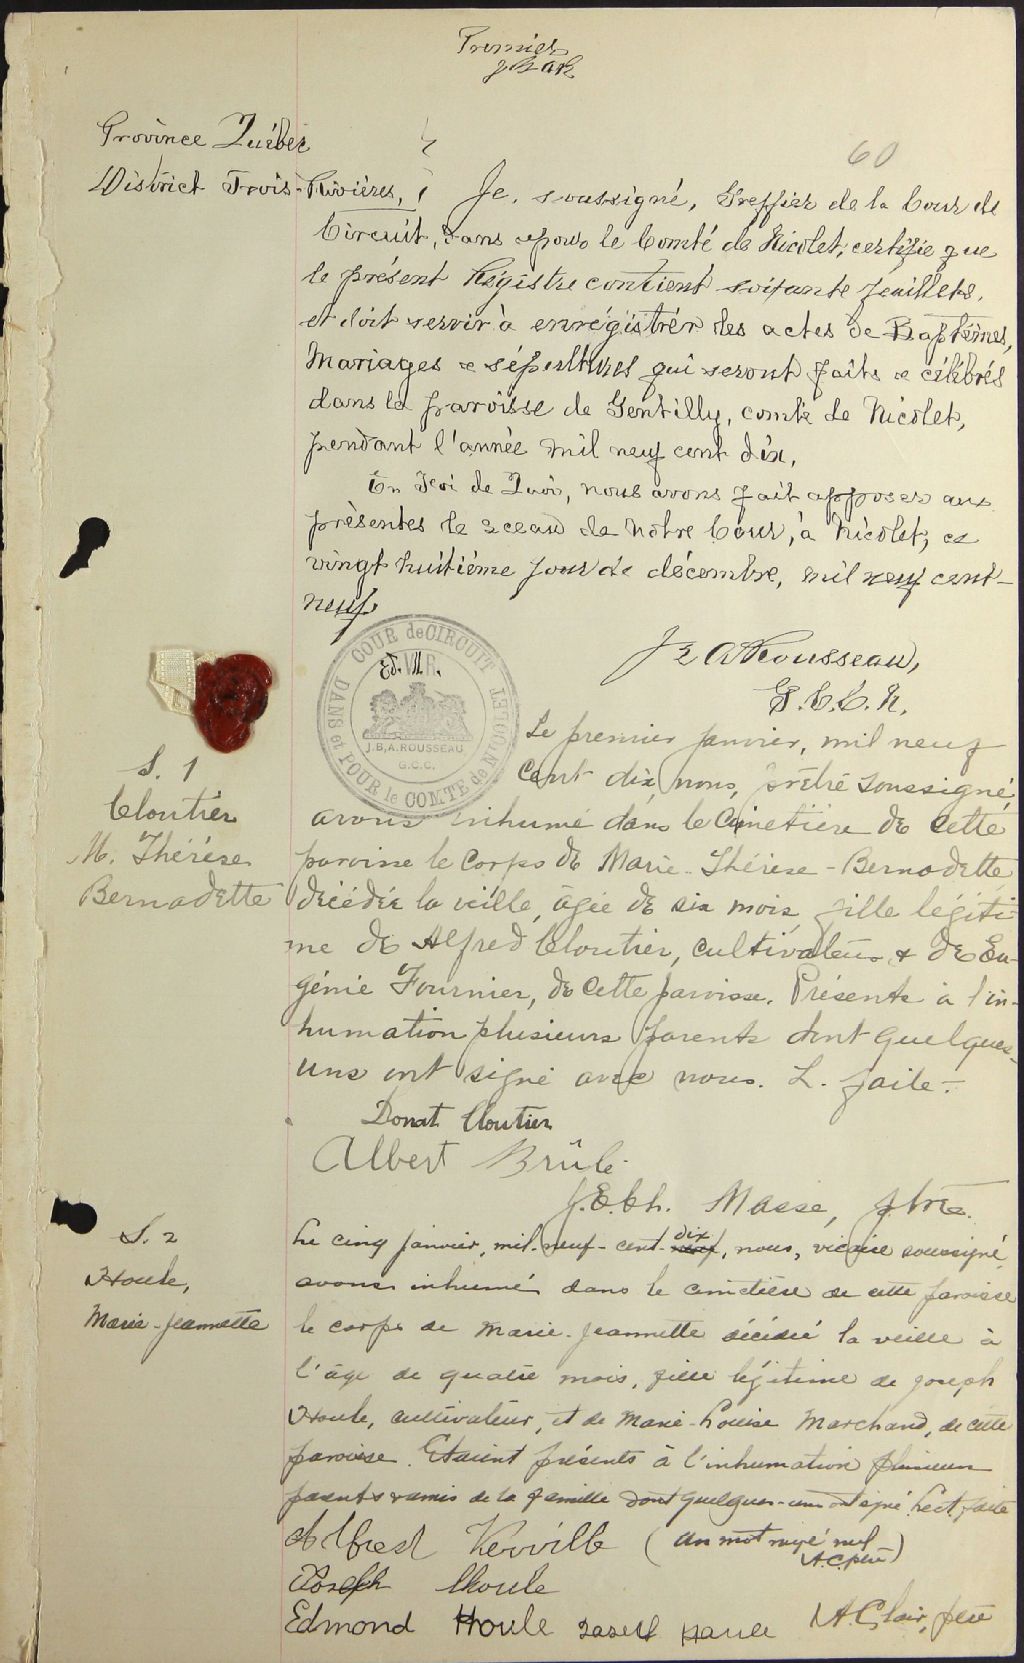 Premier
JBAR
Province Québec
60
District Trois-Rivières, Je, soussigné, Greffier de la Cour de
Circuit, dans & pour le Comté de Nicolet, certifie que
le présent Régistre contient soixante feuillets,
et doit servir à enrégistrér les actes de Baptêmes,
Mariages & sépultures qui seront faits & célébrés
dans la paroisse de Gentilly, comté de Nicolet,
pendant l'année mil neuf cent dix,
En Foi de Quoi, nous avons fait apposer aux
présentes le sceau de notre Cour, à Nicolet, ce
vingt huitième jour de décembre, mil neuf cent-
neuf.
COUR de CIRCUIT
DANS et POUR le COMTE de NICOLET
Ed. VII R.
J.B.A. ROUSSEAU
G.C.C.
J B A Rousseau,
G.C.C.N.
S. 1
Cloutier
M. Thérèse
Bernadette
Le premier janvier, mil neuf
cent dix, nous, prêtre soussigné,
avons inhumé dans le Cimetière de cette
paroisse le corps de Marie-Thérèse-Bernadette
décédée la veille, âgée de six mois, fille légiti-
me de Alfred Cloutier, cultivateur & de Eu-
génie Fournier, de cette paroisse. Présents à l'in-
humation plusieurs parents dont quelques-
uns ont signé avec nous. L. faite-
Donat Cloutier
Albert Brûlé
J.E.Ch. Masse, ptre.
S. 2
Houle,
Marie-Jeannette
Le cinq janvier, mil-neuf-cent-neuf dix, nous, vicaire soussigné,
avons inhumé dans le cimetière de cette paroisse
le corps de Marie-Jeannette décédée la veille à
l'âge de quatre mois, fille légitime de Joseph
Houle, cultivateur, et de Marie-Louise Marchand, de cette
paroisse. Etaient présents à l'inhumation plusieurs
parents & amis de la famille dont quelques-uns ont signé. Lect. faite
Alfred (un mot rayé nul
A.C. ptre)
Joseph Houle
Edmond Houle Josell Houle A. Clair, ptre